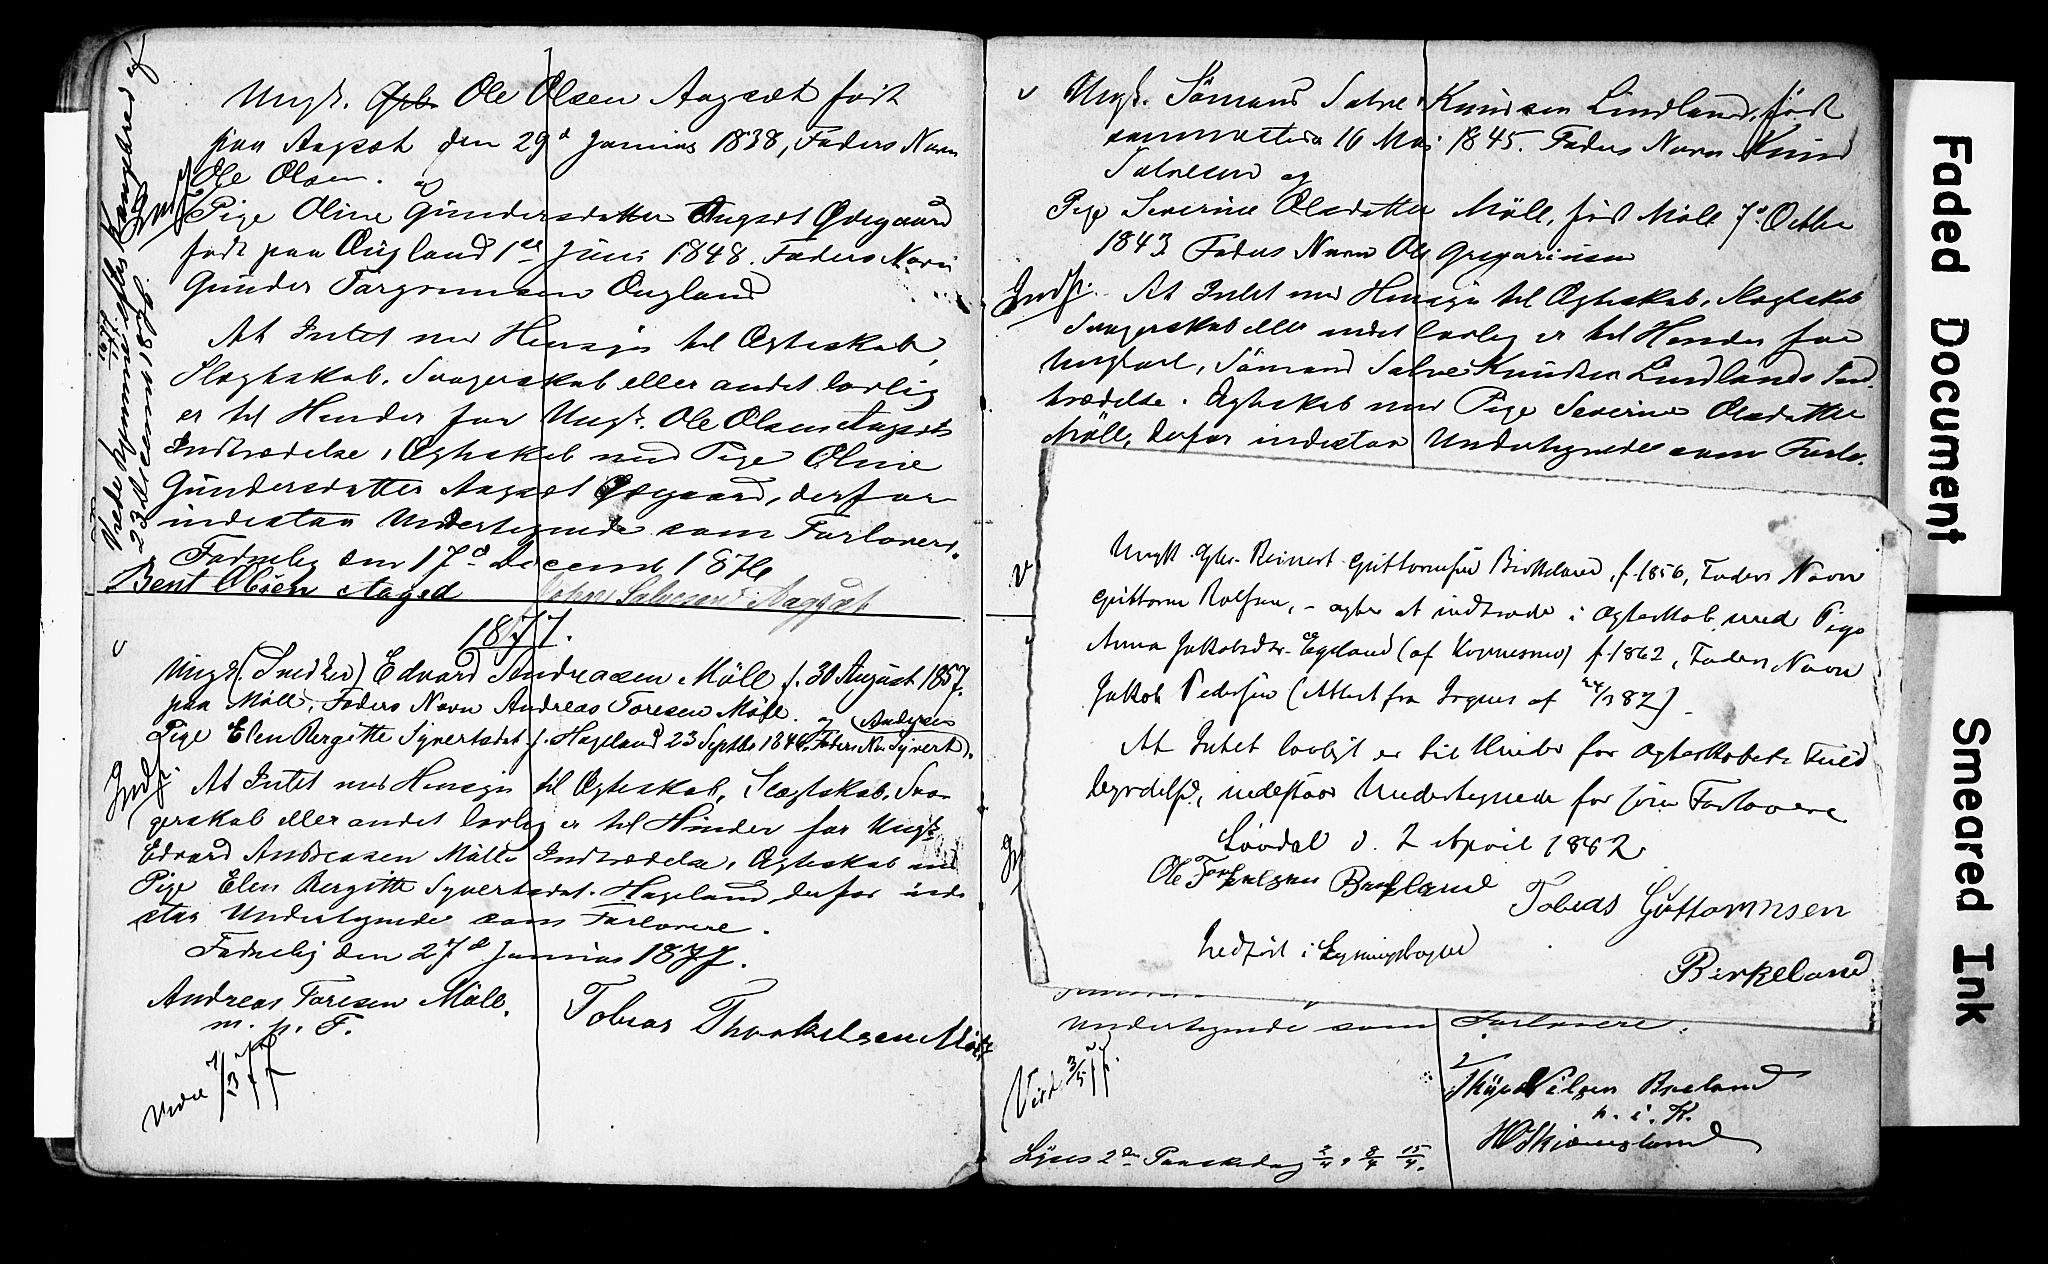 Ungk. Ole Olsen Aagsæt født
paa Aagsæt den 29d Januar 1838, Faders Navn
Ole Olsen. og
Pige Oline Gundersdatter Aagsæt Ødegaard
født paa Øugland 1ste Juni 1848. Faders Navn
Gunder Øugland
At Intet med Hensyn til Ægteskab,
Slægtskab, Svogerskab eller andet lovlig
er til Hinder for Ungk. Ole Olsen Aagsæts
Indtrædelse i Ægteskab med Pige Oline
Gundersdatter Aagsæt Ødegaard, derfor
indestaa Undertegnede som Forlovere.
den 17d Decemb 1876
Bent Olsen Aagsed
Salvesen Aagsæt
Indf.
23 Decemb 1876.
1877.
Ungk (Snedker) Edvard Andreasen Möll f. 30 August 1857.
paa Möll, Faders Navn Andreas Toresen Möll. og
Pige Elen Bergitte Syvertsdat. f. Hageland 23 Septbr 1846, Faders Nn Syvert
Andersen
Indf.
At Intet med Hensyn til Ægteskab, Slægtskab, Svo-
gerskab eller andet lovlig er til Hinder for Ungk
Edvard Andreasen Mölls Indtrædelse i Ægteskab med
Pige Elen Bergitte Syvertsdat. Hageland derfor inde
staa Undertegnede som Forlovere.
den 27d Januar 1877.
Andreas Toresen Möll.
m. p. F.
Tobias Thorkelsen Möll
Viede
Ungk. Sömand Salve Knudsen Lindland, født
sammesteds 16 Mai 1845. Faders Navn Knud
Salvesen og
Pige Severine Olsdatter Möll, født Möll 7d Octbr
1843 Faders Navn Ole Gregoriusen
Indf.
At Intet med Hensyn til Ægteskab, Slægtskab
Svogerskab eller andet lovlig er til Hinder for
Ungkarl, Sömand Salve Knudsen Lindlands Ind
trædelse i Ægteskab med Pige Severine Olsdatter
Möll, derfor indestaa Undertegnede som Forlo-
Ungk. Reinert Guttormsen Birkeland, f. 1856, Faders Navn
Guttorm Rolfsen, - agter at indtræde i Ægteskab med Pige
Anna Jakobsdtr. Egeland (af) f. 1862, Faders Navn
Jakob Pedersen (Attest fra af 24/3 82).
At Intet lovligt er til Hinder for Ægteskabets Fuld
byrdelse, indestaar Undertegnede for som Forlovere
d. 2 April 1882
Ole Birkeland
Tobias Guttormsen
Birkeland
Indført i Lysningsbogen
Undertegnede som Forlovere.
Viet 3/5 77.
Nilsen Breland
Lyses 2den Paaskedag 2/4, 8/4 15/4.
Faded Document
Smeared Ink